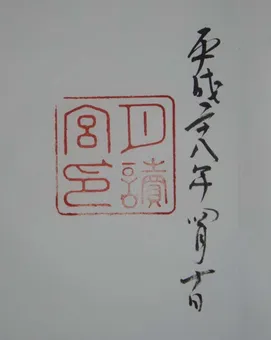 平成二十八年四月十日
月讀
宮印